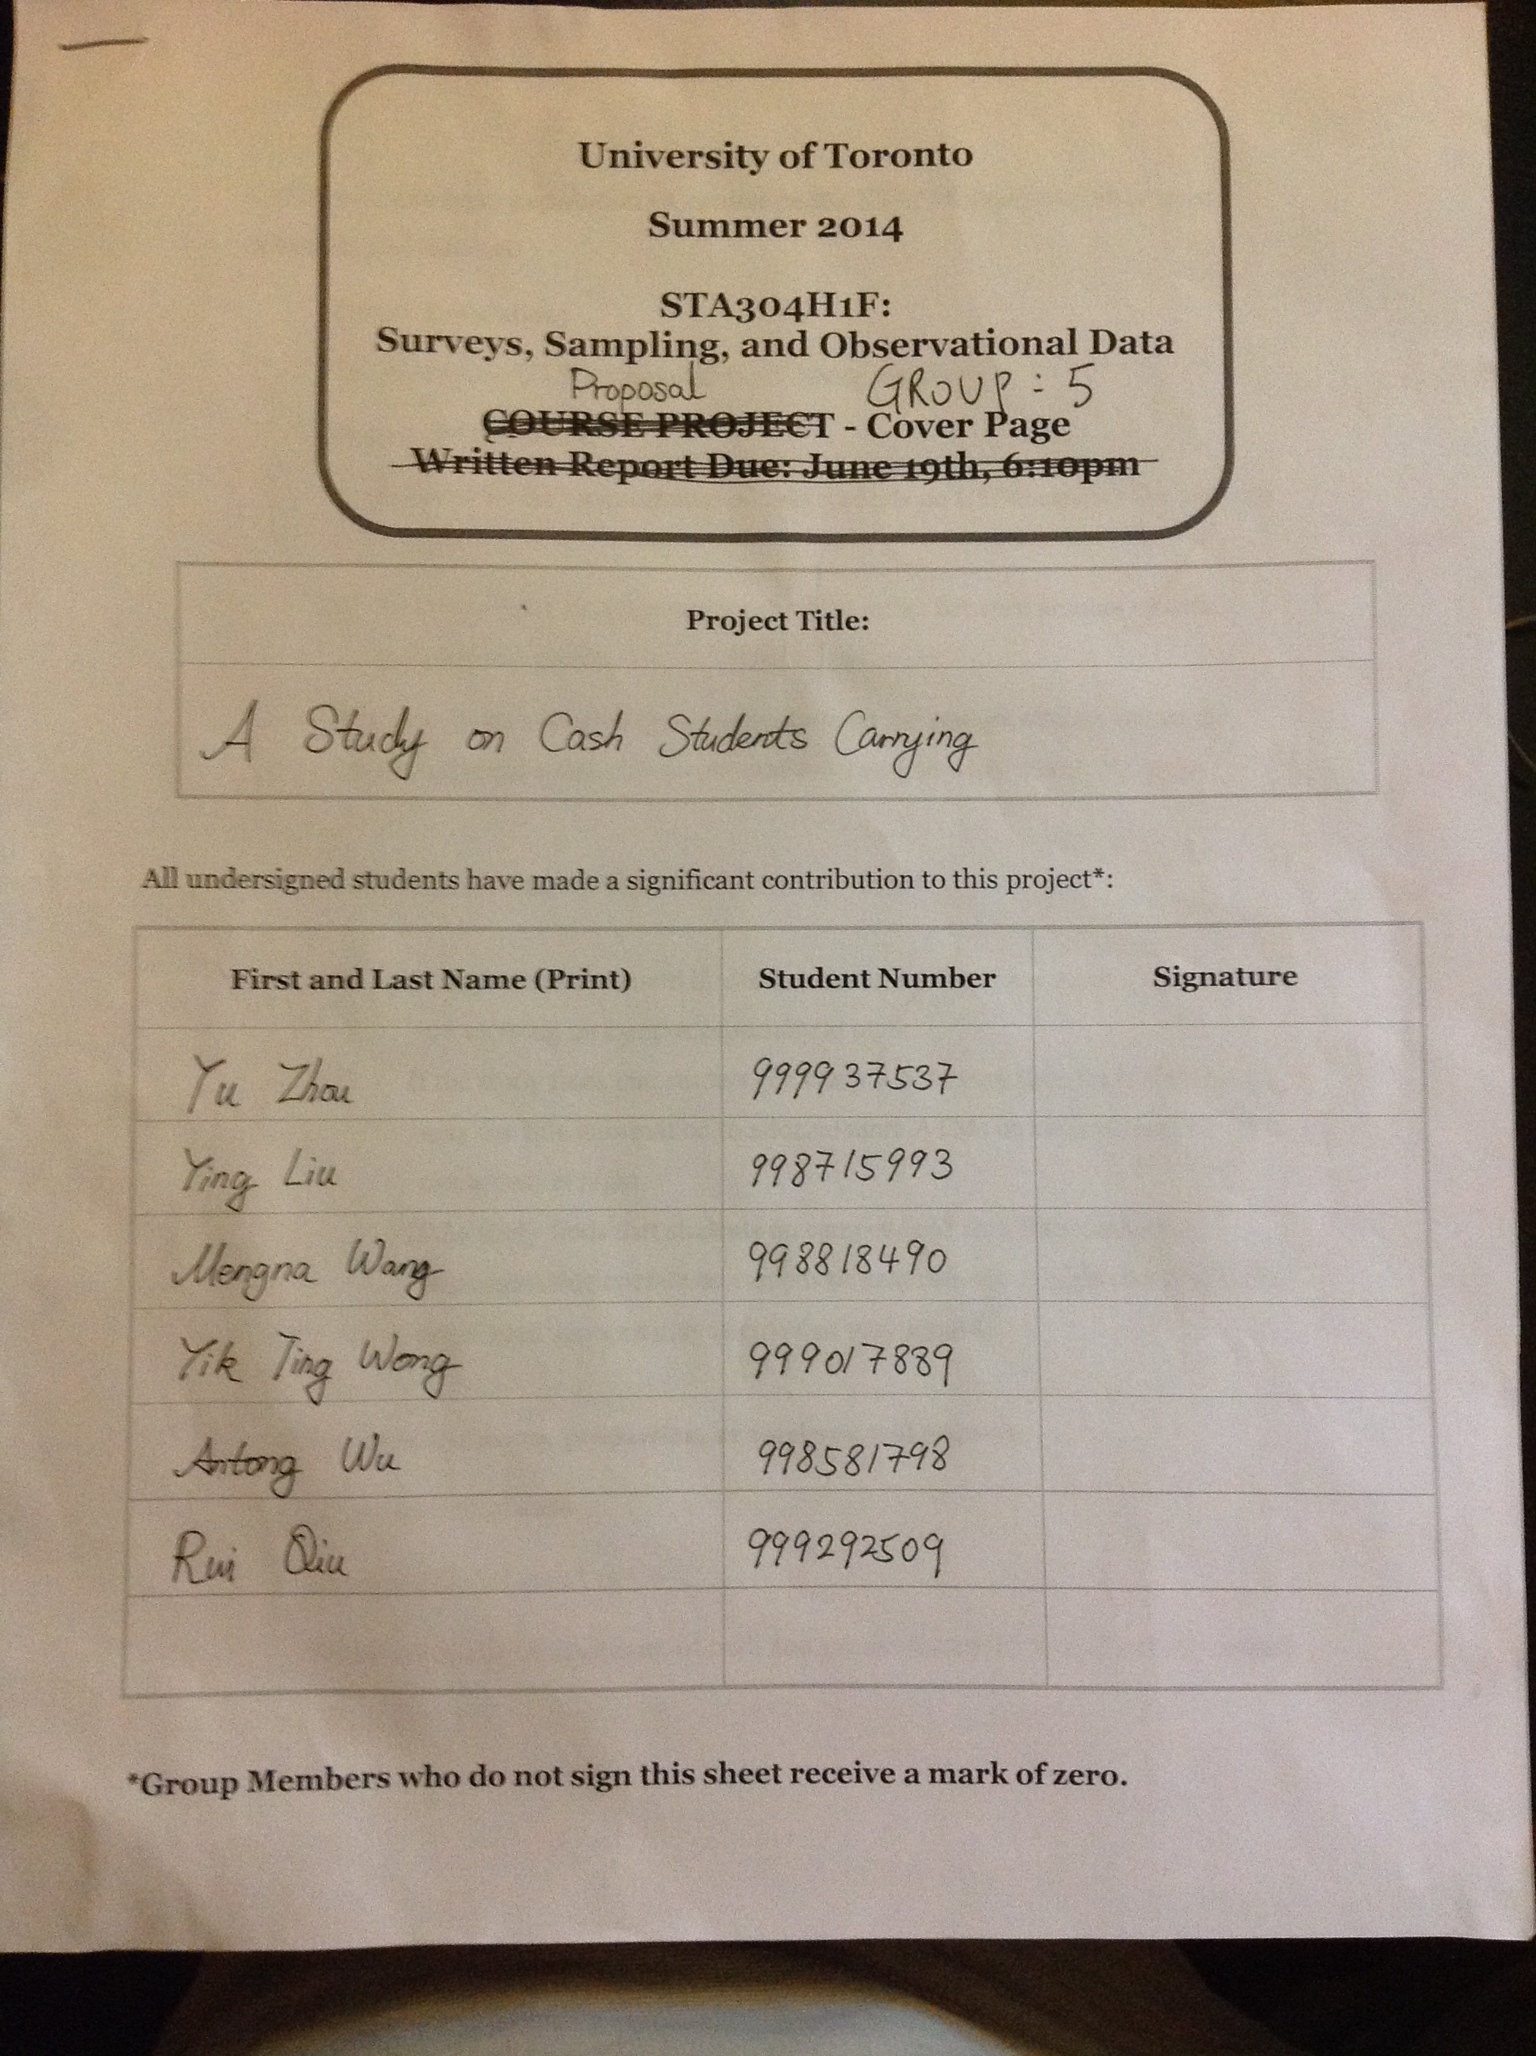 University of Toronto
Summer 2014
STA304H1F:
Surveys, Sampling, and Observational Data
Proposal GROUP: 5
COURSE PROJECT - Cover Page
Written Report Due: June 19th, 6:10pm
Project Title:
A Study on Cash Students Carrying
All undersigned students have made a significant contribution to this project*:
First and Last Name (Print) Student Number Signature
Yu Zhou 999937537
Ying Liu 998715993
Mengna Wang 998818490
Yik Ting Wong 999017889
Antong Wu 998581798
Rui Qiu 999292509
*Group Members who do not sign this sheet receive a mark of zero.